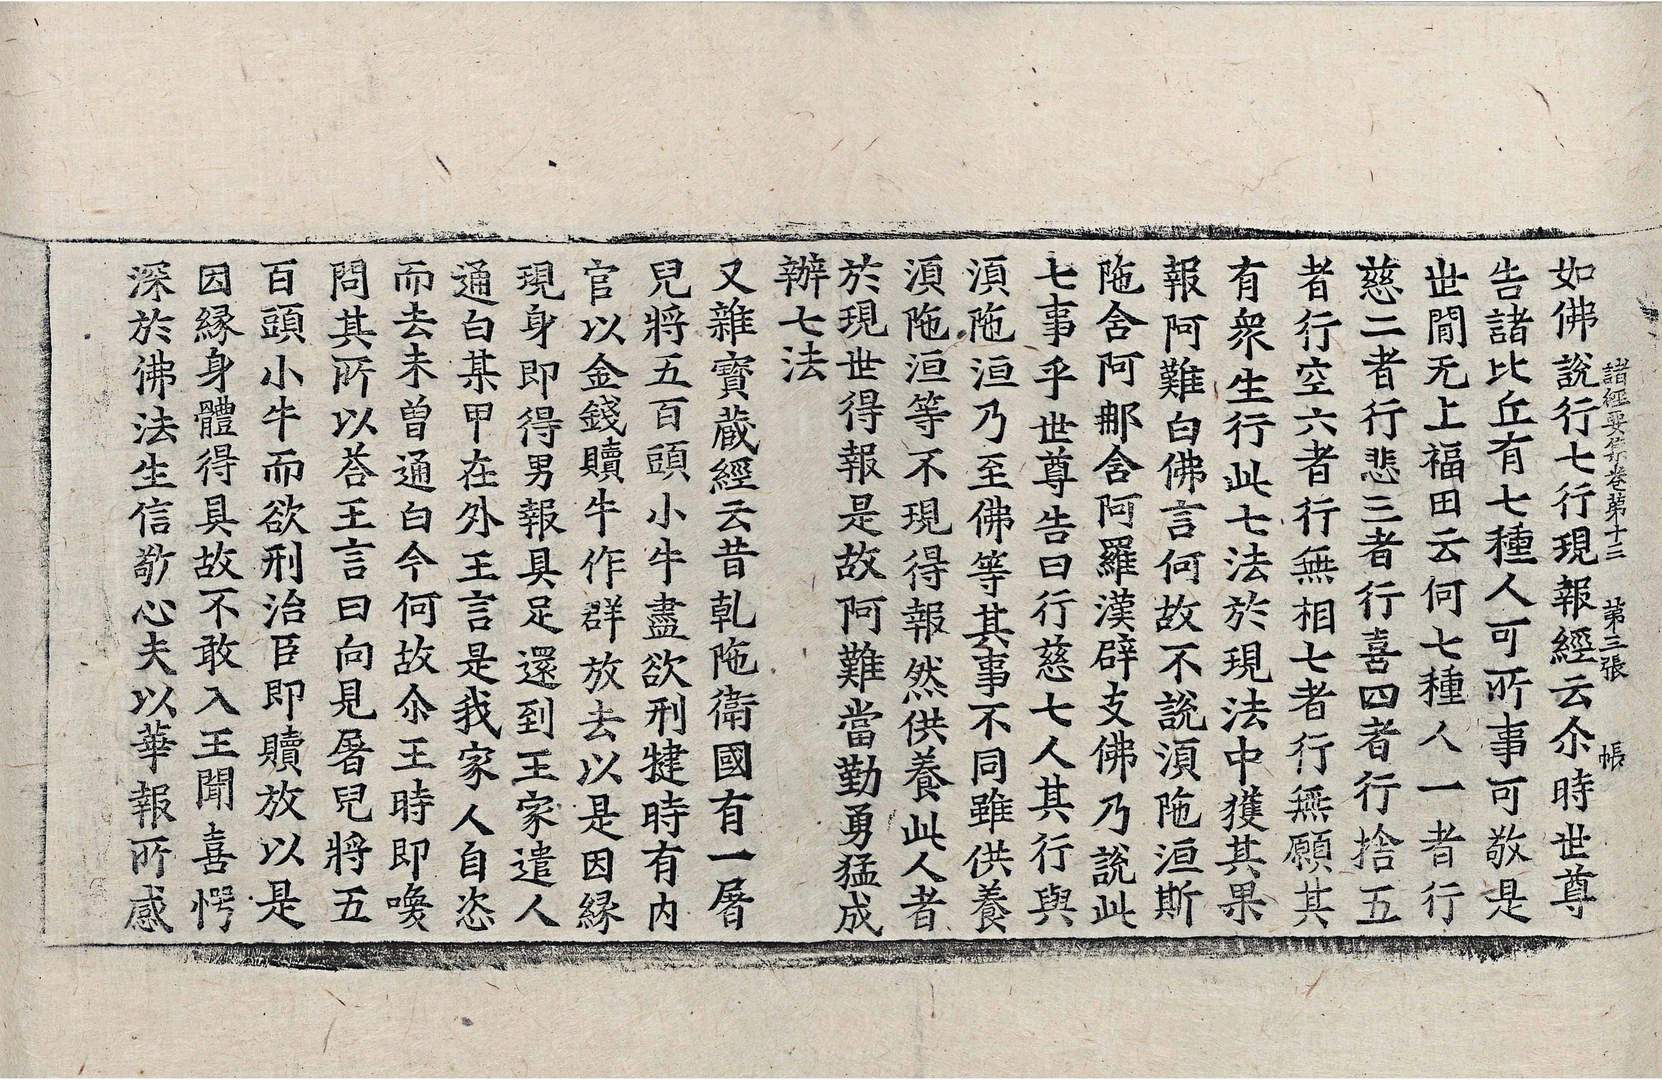 諸經要集卷第十三 第三張 帳
如佛說行七行現報經云尒時世尊
告諸比丘有七種人可所事可敬是
世閒无上福田云何七種人一者行
慈二者行悲三者行喜四者行捨五
者行空六者行無相七者行無願其
有衆生行此七法於現法中獲其果
報阿難白佛言何故不說湏陁洹斯
陁含阿𨙻含阿羅漢辟支佛乃說此
七事乎世尊告曰行慈七人其行與
湏陁洹乃至佛等其事不同雖供養
湏陁洹等不現得報然供養此人者
於現世得報是故阿難當勤勇猛成
辦七法
又雜寶蔵經云昔乹陁衛國有一屠
兒將五百頭小牛盡欲刑犍時有內
官以金錢贖牛作群放去以是因緣
現身即得男報具足還到王家遣人
通白某甲在外王言是我家人自恣
而去未曾通白今何故尒王時即喚
問其所以荅王言曰向見屠兒將五
百頭小牛而欲刑治臣即贖放以是
因緣身體得具故不敢入王聞喜愕
深於佛法生信敬心夫以華報所感